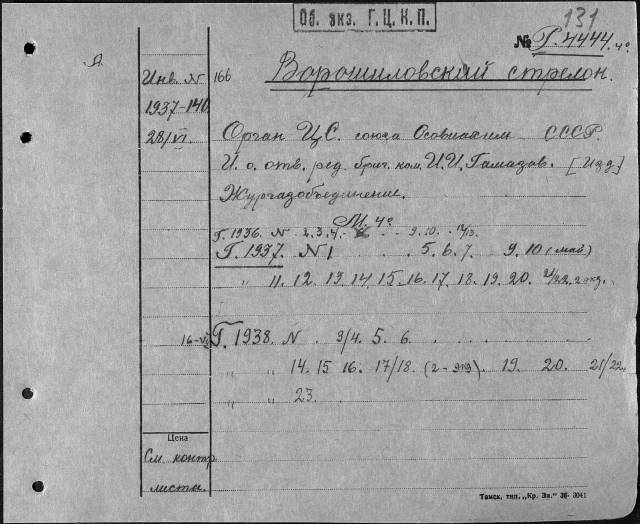 Об. экз. Г. Ц. К. П.
131
№ Р. 4444. 4°
А
Инв. N 166
Ворошиловский стрелок.
1937-140
28/VI.
Орган ЦС. союза Осовиахим СССР.
И. о. отв. ред. бриг. ком. И. И. Гамазов. [Изд]
Жургазобъединение.
М. 4°
Г. 1936. N 2. 3. 4. 9. 10. 12/13.
Г. 1937. N 1 5. 6. 7. 9. 10 (май)
" 11. 12. 13. 14. 15. 16. 17. 18. 19. 20. 21/22. 2 экз.
16-VI Г. 1938. N 3/4. 5. 6.
" " 14. 15 16. 17/18 (2-экз). 19. 20. 21/22.
" " 23.
Цена
См. контр.
листы.
Тамск. тип. „Кр. Зн." 36- 3041